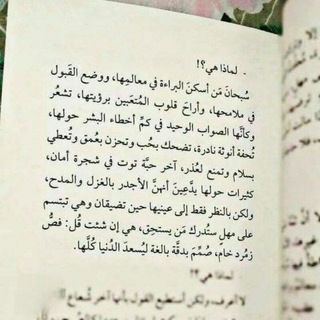 - لماذا هي؟!
سُبحانَ مَن أسكنَ البراءة في معالمِها، ووضع القَبول
في ملامحها، وأراحَ قلوب المُتعَبين برؤيتها، تشعُر
وكأنَّها الصواب الوحيد في كمِّ أخطاء البشر حولها،
تُحفة أنوثة نادرة، تضحك بحُب وتحزن بعُمق وتُعطي
بسلام وتمنع لعُذر، آخر حبَّة توت في شجرة أمان،
كثيرات حولها يدَّعينَ أنهنَّ الأجدر بالغزل والمدح،
ولكن بالنظر فقط إلى عينيها حين تضيقان وهي تبتسم
على مهلٍ ستُدرك مَن يستحِق، هي إن شئت قُل: فصُّ
زمُرد خام، صُمِّمَ بدقَّة بالغة ليُسعدَ الدُّنيا كُلَّها.
لماذا هي؟
لا أعرف، ولكن أستطيع القول بأنها آخر شُعاع